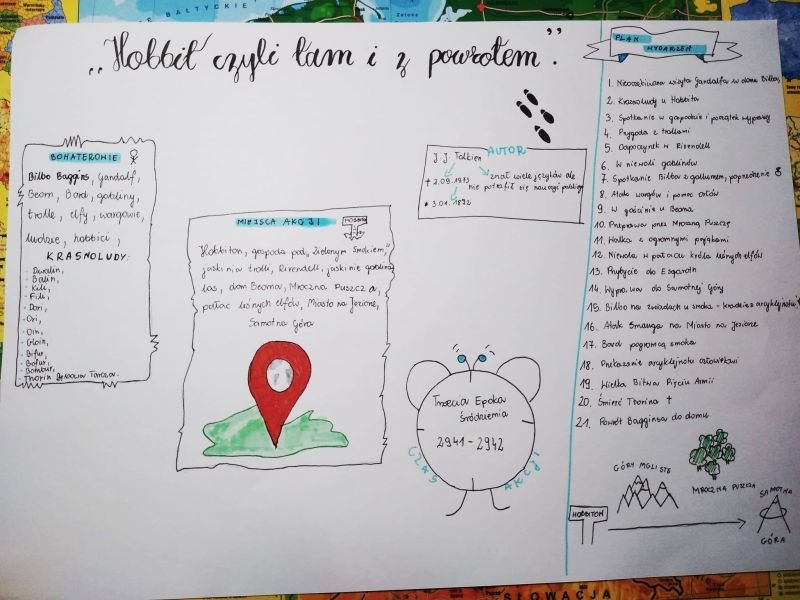 „Hobbit czyli tam i z powrotem”.
BOHATEROWIE
Bilbo Baggins, Gandalf,
Beorn, Bard, gobliny,
trolle, elfy, wargowie,
ludzie, hobbici,
KRASNOLUDY:
· Dwalin,
· Balin,
· Kili,
· Fili,
· Dori,
· Ori,
· Oin,
· Gloin,
· Bifur,
· Bofur,
· Bombur,
· Thorin Dębowa Tarcza.
MIEJSCA AKCJI
HOBBITON
Hobbiton, gospoda pod „Zielonym Smokiem,”
jaskinia trolli, Rivendell, jaskinie goblinów
las, dom Beorna, Mroczna Puszcza,
pałac leśnych elfów, Miasto na Jeziorze,
Samotna Góra
AUTOR
J.J. Tolkien
† 2.09.1973
* 3.01.1892
znał wiele języków ale
nie potrafił się nauczyć polskiego
Trzecia Epoka
Śródziemia
2941-2942
CZAS AKCJI
PLAN
WYDARZEŃ
1. Nieoczekiwana wizyta Gandalfa w domu Bilba
2. Krasnoludy u Hobbita
3. Spotkanie w gospodzie i początek wyprawy
4. Przygoda z trollami
5. Odpoczynek w Rivendell
6. W niewoli goblinów
7. Spotkanie Bilba z gollumem,
8. Atak wargów i pomoc orłów
9. W gościnie u Beorna
10. Przeprawa przez Mroczną Puszczę
11. Walka z ogromnymi pająkami
12. Niewola w pałacu króla leśnych elfów
13. Przybycie do Esgaroth
14. Wyprawa do Samotnej Góry
15. Bilbo na zwiadach u smoka - kradzież arcyklejnotu
16. Atak Smauga na Miasto na Jeziorze
17. Bard pogromcą smoka
18. Przekazanie arcyklejnotu człowiekowi
19. Wielka Bitwa Pięciu Armii
20. Śmierć Thorina †
21. Powrót Bagginsa do domu
GÓRY MGLISTE
MROCZNA PUSZCZA
HOBBITON
SAMOTNA
GÓRA
SŁOWACJA